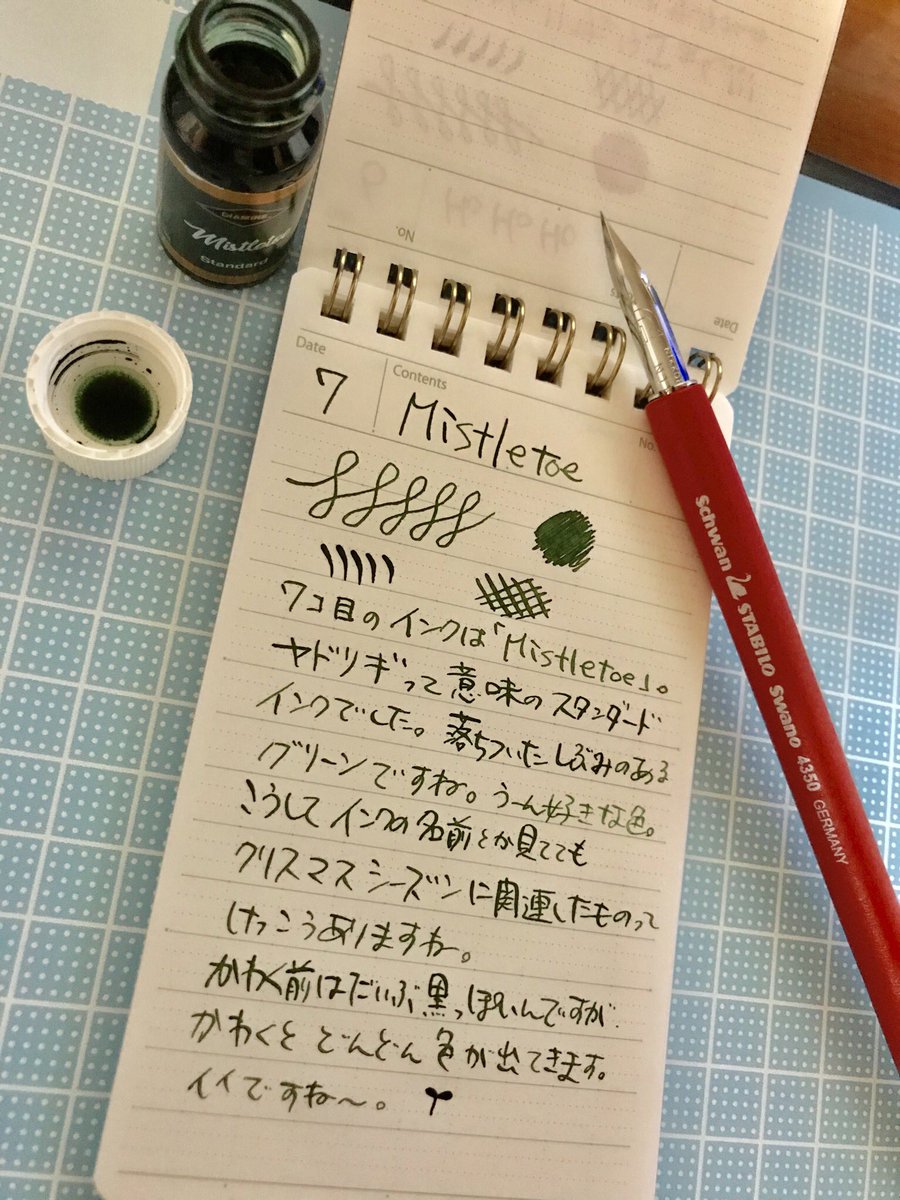 DIAMINE
Mistletoe
Standard
No.
Date
Date
7
Contents
Mistletoe
No.
7コ目のインクは「Mistletoe」。
ヤドリギって意味のスタンダード
インクでした。落ちついたしぶみのある
グリーンですね。うーん好きな色。
こうしてインクの名前とか見てても
クリスマスシーズンに関連したものって
けっこうありますね。
かわく前はだいぶ黒っぽいんですが
かわくとどんどん色が出てきます。
イイですね〜。
Schwan STABILO Swano 4350 GERMANY